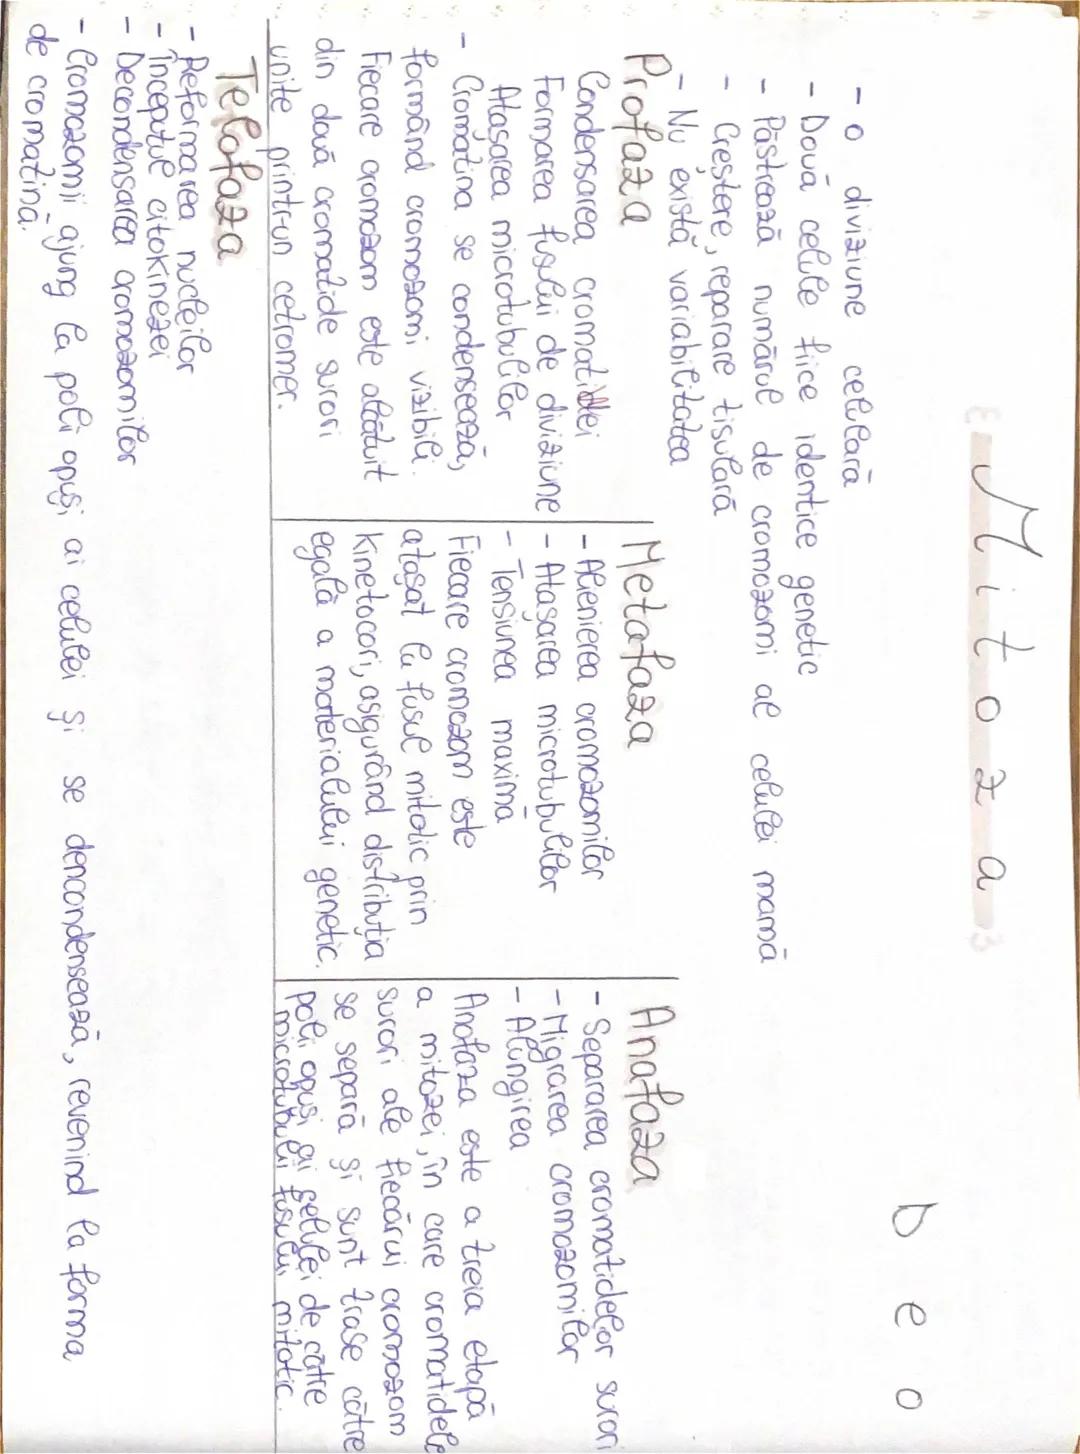 Mitoza
Deo
- o diviziune celulară
- Două celule fiice identice genetic
- Păstrează numărul de cromozomi al celulei mamă
- Creștere, reparare tisulară
- Nu există variabilitatea
Profaza
Condensarea cromatidei
Formarea fusului de diviziune
Atașarea microtubulilor
- Cromatina se condensează,
formând cromozomi vizibili.
Fiecare cromozom este alcătuit
din două cromatide surori
unite printr-un cetromer.
Metafaza
- Alienierea cromozomilor
- Atașarea microtubulilor
- Tensiunea maximă
Fiecare cromozom este
atașat la fusul mitotic prin
Kinetocori, asigurând distribuția
egală a materialului genetic.
Anafaza
- Separarea cromatidelor surori
- Migrarea cromozomilor
- Alungirea
Anafaza este a treia etapă
a mitozei, în care cromatidele
surori ale fiecărui cromozom
se separă și sunt trase către
poli opuși ai celulei de către
microtubulii fusului mitotic.
Telofaza
- Reformarea nucleilor
- Începutul citokinezei
- Decondensarea cromozomilor
- Cromozomii ajung la poli opuși ai celulei și se dencondensează, revenind la forma
de cromatină.